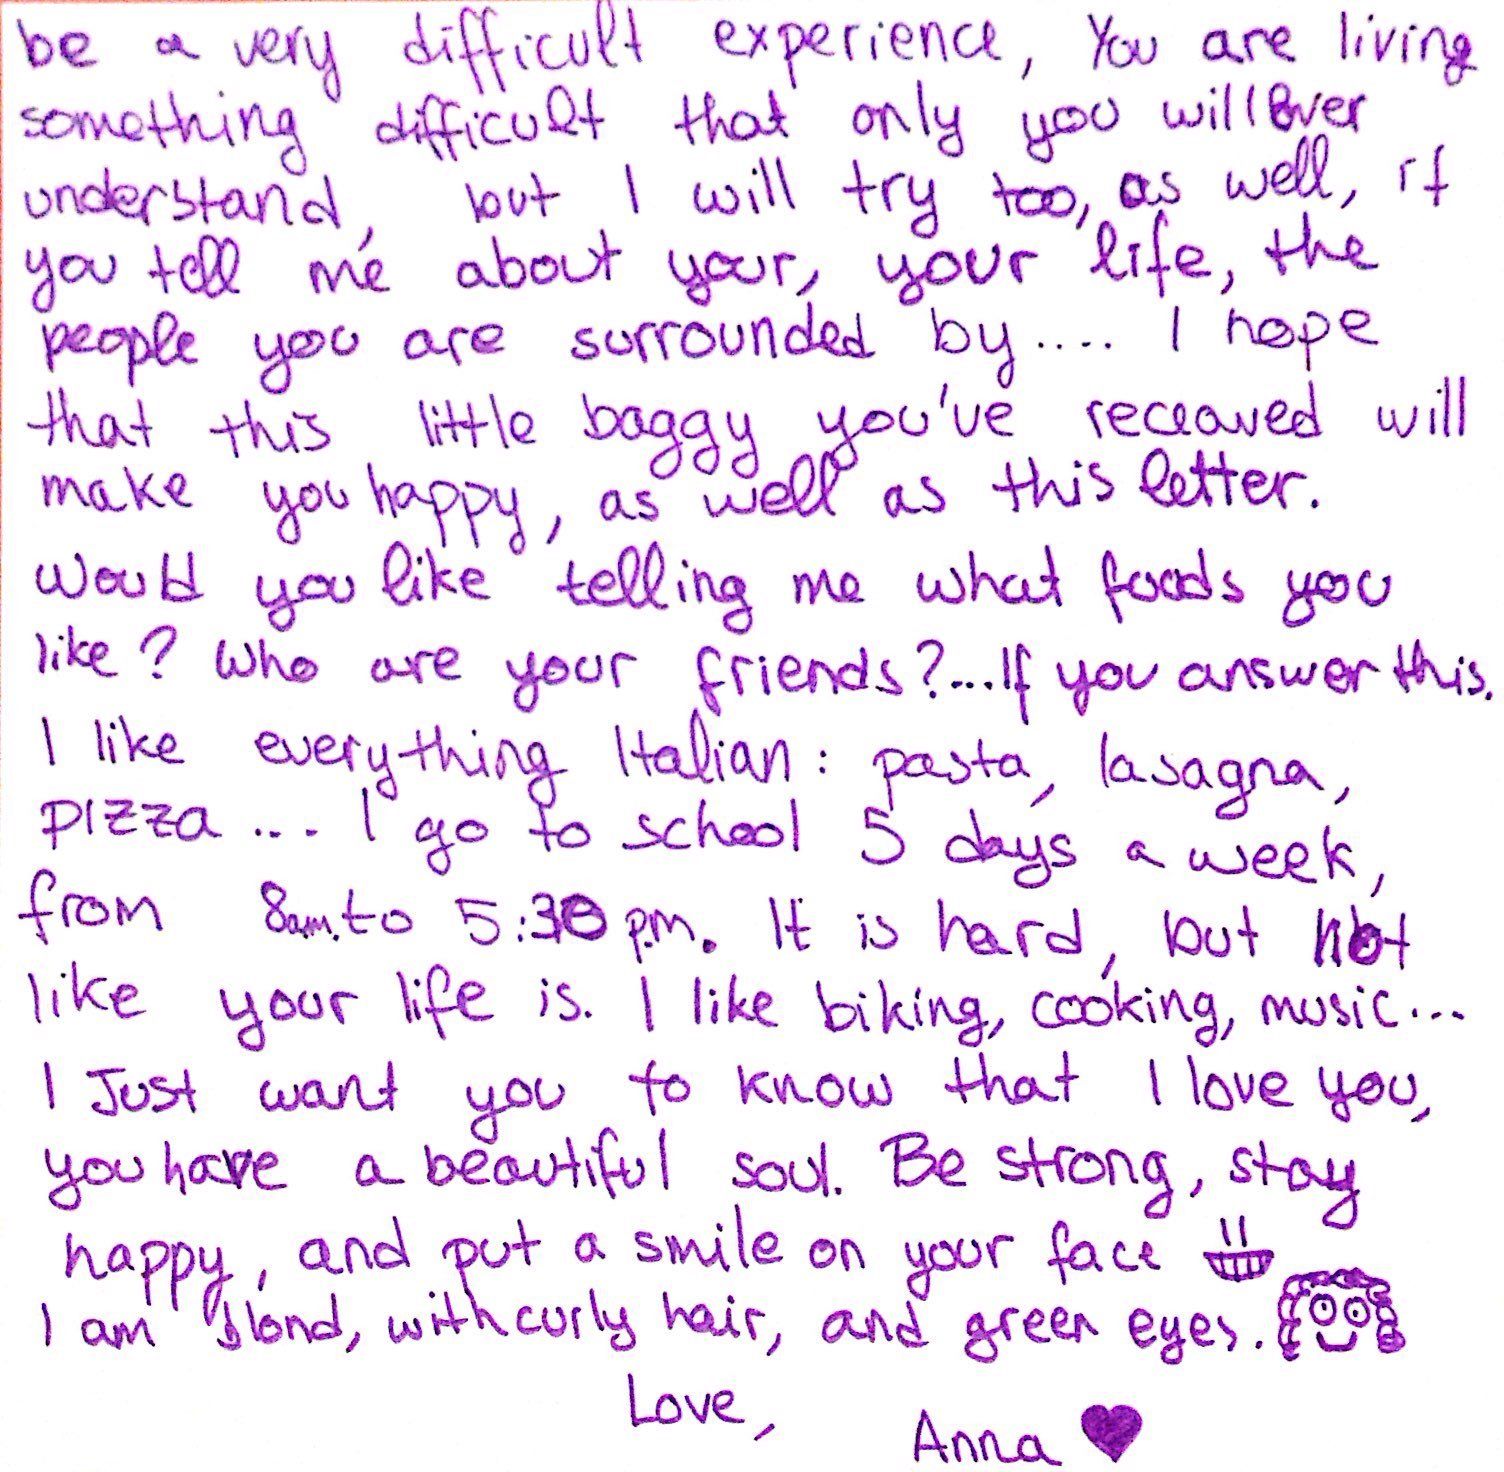 be a very difficult experience, You are living
something difficult that only you will ever
understand, but I will try too, as well, if
you tell me about your, your life, the
people you are surrounded by.... I hope
that this little baggy you've receaved will
make you happy, as well as this letter.
Would you like telling me what foods you
like? Who are your friends?...If you answer this.
I like everything Italian: pasta, lasagna,
pizza... I go to school 5 days a week,
from 8am. to 5:30 p.m. It is hard, but not
like your life is. I like biking, cooking, music...
I Just want you to know that I love you,
you have a beautiful soul. Be strong, stay
happy, and put a smile on your face
I am blond, with curly hair, and green eyes.
Love,
Anna